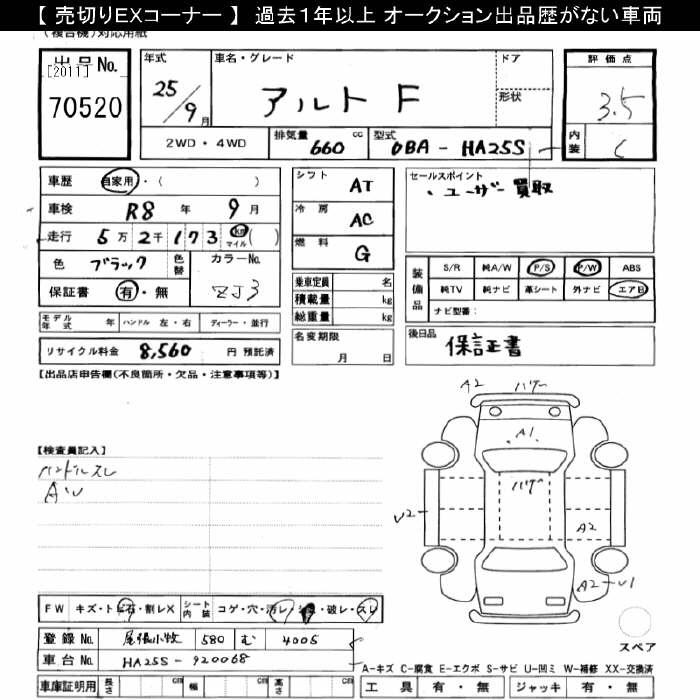 【 売切りEXコーナー 】 過去１年以上 オークション出品歴がない車両
(複合機)対応用紙
出品No.
[2011]
70520
年式
25/9月
車名・グレード
アルト F
ドア
形状
2WD・4WD
排気量 660 cc
型式 DBA - HA25S
評価点
3.5
内装 C
車歴 自家用・( )
車検 R8 年 9 月
走行 5万2千173 km マイル ( )
色 ブラック 色替
カラーNo. ZJ3
保証書 有・無
シフト AT
冷房 AC
燃料 G
乗車定員 名
積載量 kg
総重量 kg
セールスポイント
、ユーザー買取
装備品
S/R 純A/W P/S P/W ABS
純TV 純ナビ 革シート 外ナビ エアB
ナビ型番:
モデル年式 年 ハンドル 左・右 ディーラー・並行
リサイクル料金 8,560 円 預託済
名変期限
月 日
後日品 保証書
【出品店申告欄(不良箇所・欠品・注意事項等)】
A2
A1
V2
A2
A2 V1
【検査員記入】
ハンドルスレ
FW キズ・トビ石・割レX
シート内装 コゲ・穴・汚レ・シミ・破レ・スレ
登録No. 尾張小牧 580 む 4005
車台No. HA25S - 920068
スペア
A-キズ C-腐食 E-エクボ S-サビ U-凹ミ W-補修 XX-交換済
車庫証明用 長さ cm 幅 cm 高さ cm
工具 有・無 ジャッキ 有・無